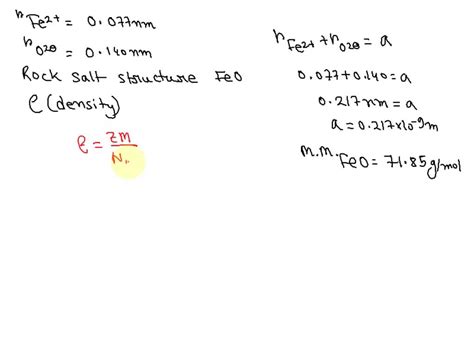 rFe2+ = 0.077nm
rO2⊖ = 0.140nm
Rock salt structure FeO
ρ (density)
ρ = ZM
N.
rFe2+ + rO2⊖ = a
0.077+0.140 = a
0.217 nm = a
a = 0.217×10⁻⁹m
m.m. FeO = 71.85 g/mol